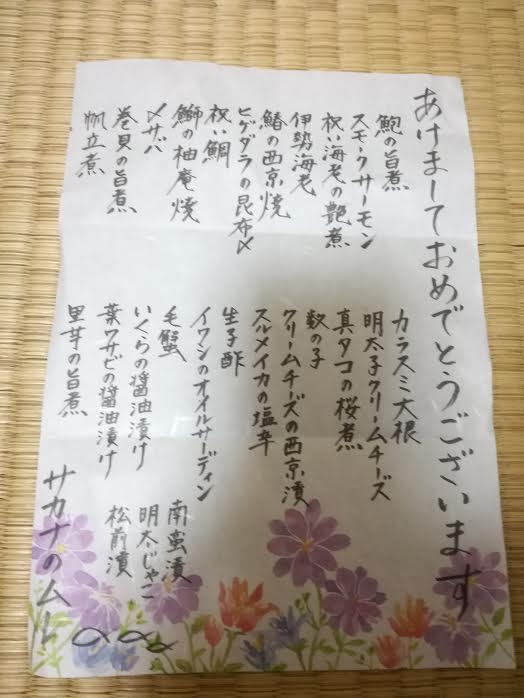 あけましておめでとうございます
鮑の旨煮
スモークサーモン
祝い海老の艶煮
伊勢海老
鰆の西京焼
ヒゲダラの昆布〆
祝い鯛
鰤の柚庵焼
〆サバ
巻貝の旨煮
帆立煮
カラスミ大根
明太子クリームチーズ
真タコの桜煮
数の子
クリームチーズの西京漬
スルメイカの塩辛
生子酢
イワシのオイルサーディン
毛蟹
いくらの醤油漬け
葉ワサビの醤油漬け
里芋の旨煮
南蛮漬
明太じゃこ
松前漬
サカナのムレ